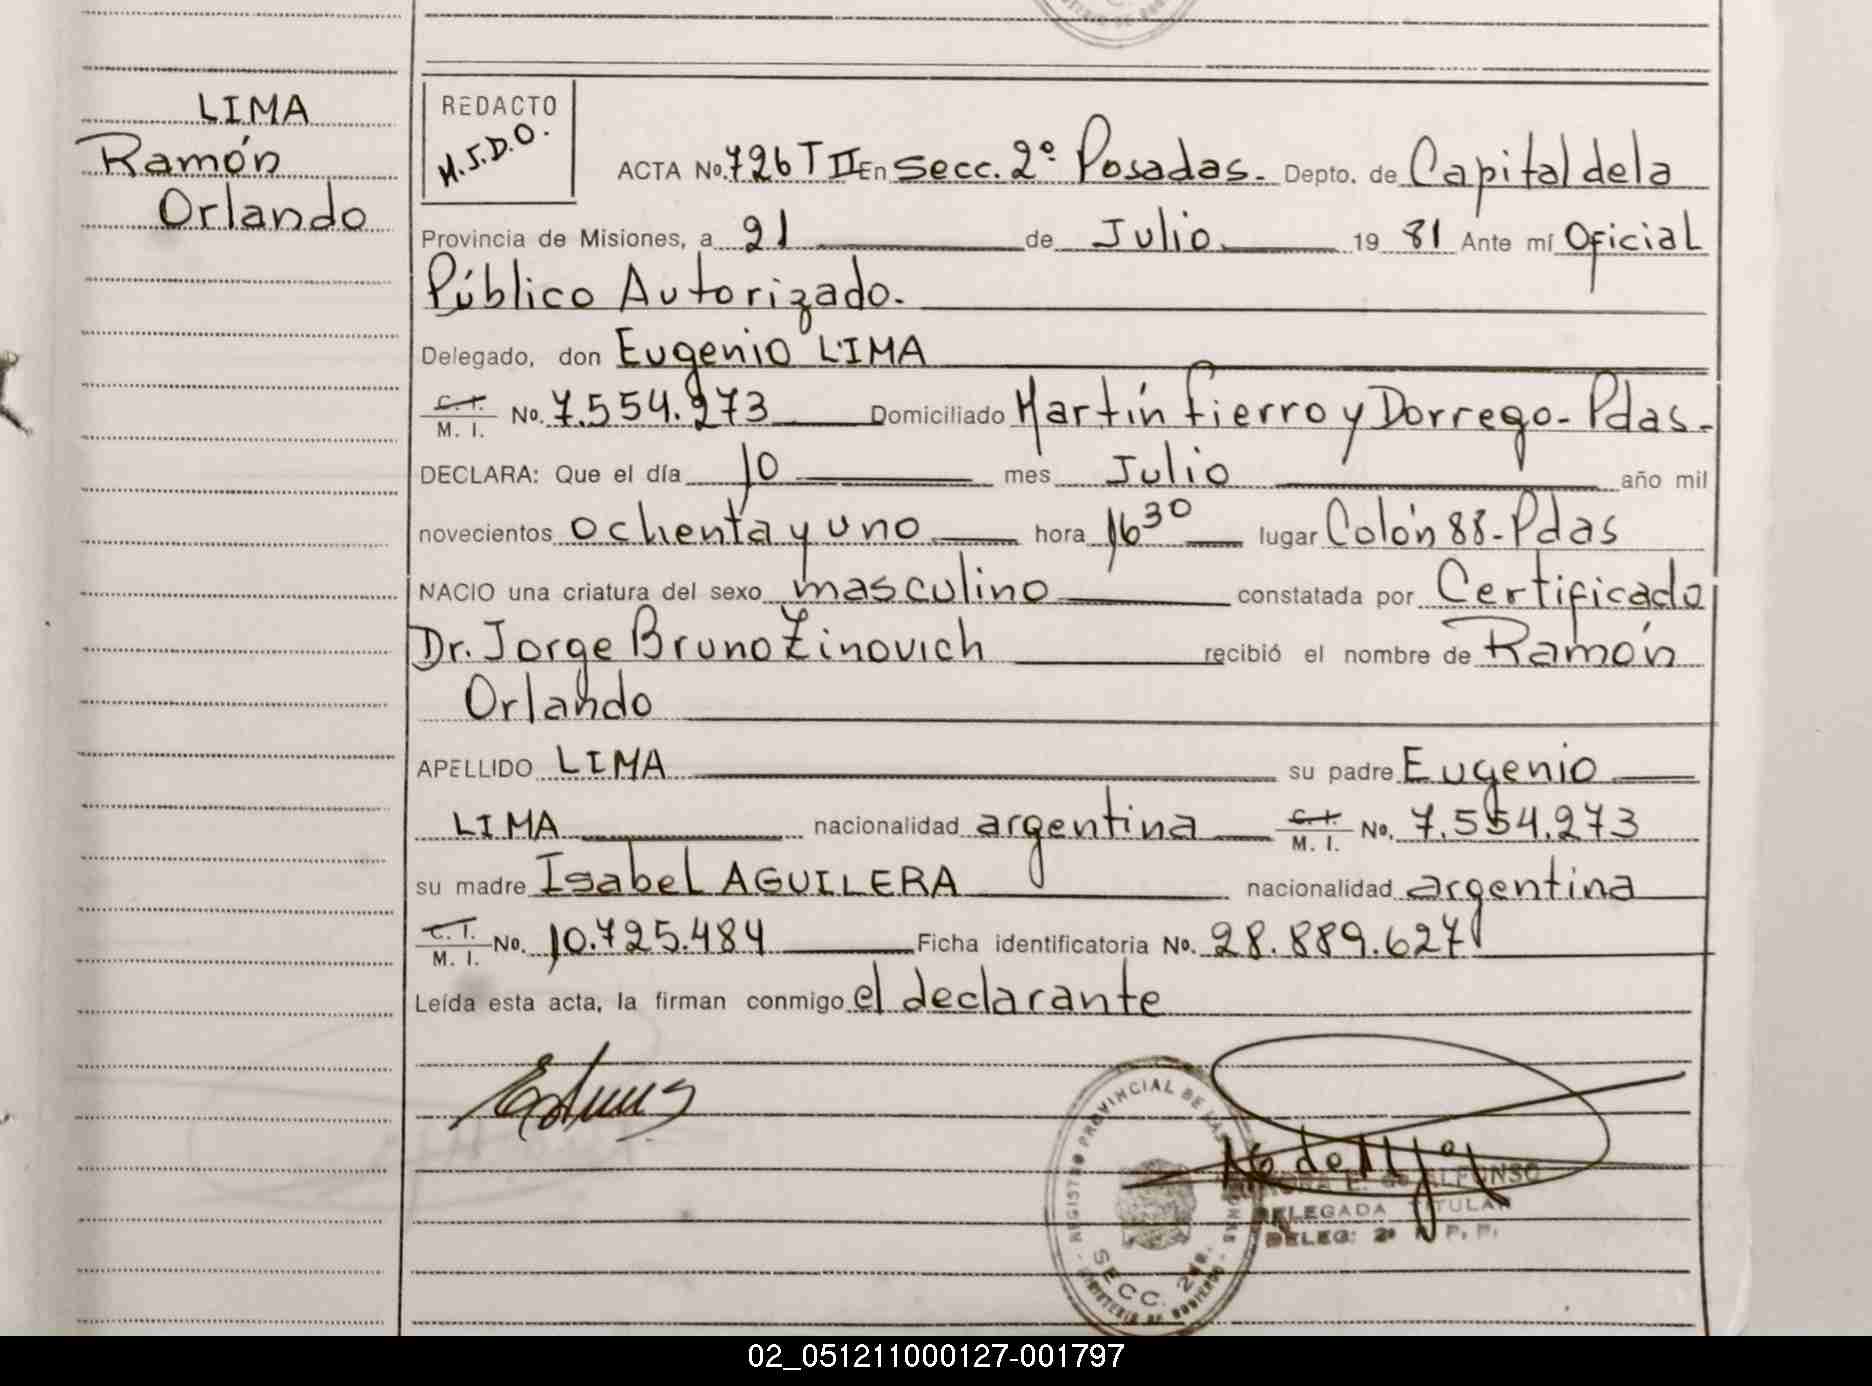 LIMA
Ramón
Orlando
REDACTO
M.J.D.O.
ACTA No. 726 T II En Secc. 2º Posadas. Depto. de Capital de la
Provincia de Misiones, a 21 de Julio 19 81 Ante mí Oficial
Público Autorizado.
Delegado, don Eugenio LIMA
C. I. M. I. No. 7.554.273 Domiciliado Martín Fierro y Dorrego - Pdas.
DECLARA: Que el día 10 mes Julio año mil
novecientos ochenta y uno hora 16 30 lugar Colón 88 - Pdas
NACIO una criatura del sexo masculino constatada por Certificado
Dr. Jorge Bruno Zinovich recibió el nombre de Ramón
Orlando
APELLIDO LIMA su padre Eugenio
LIMA nacionalidad argentina C. I. M. I. No. 7.554.273
su madre Isabel AGUILERA nacionalidad argentina
C. I. M. I. No. 10.725.484 Ficha identificatoria No. 28.889.627
Leída esta acta, la firman conmigo el declarante
REGISTRO PROVINCIAL DE LAS PERSONAS
SECC. 2
MINISTERIO DE GOBIERNO
E. de ALFONSO
DELEGADA TITULAR
DELEG: 2ª R. P. P.
02_051211000127-001797